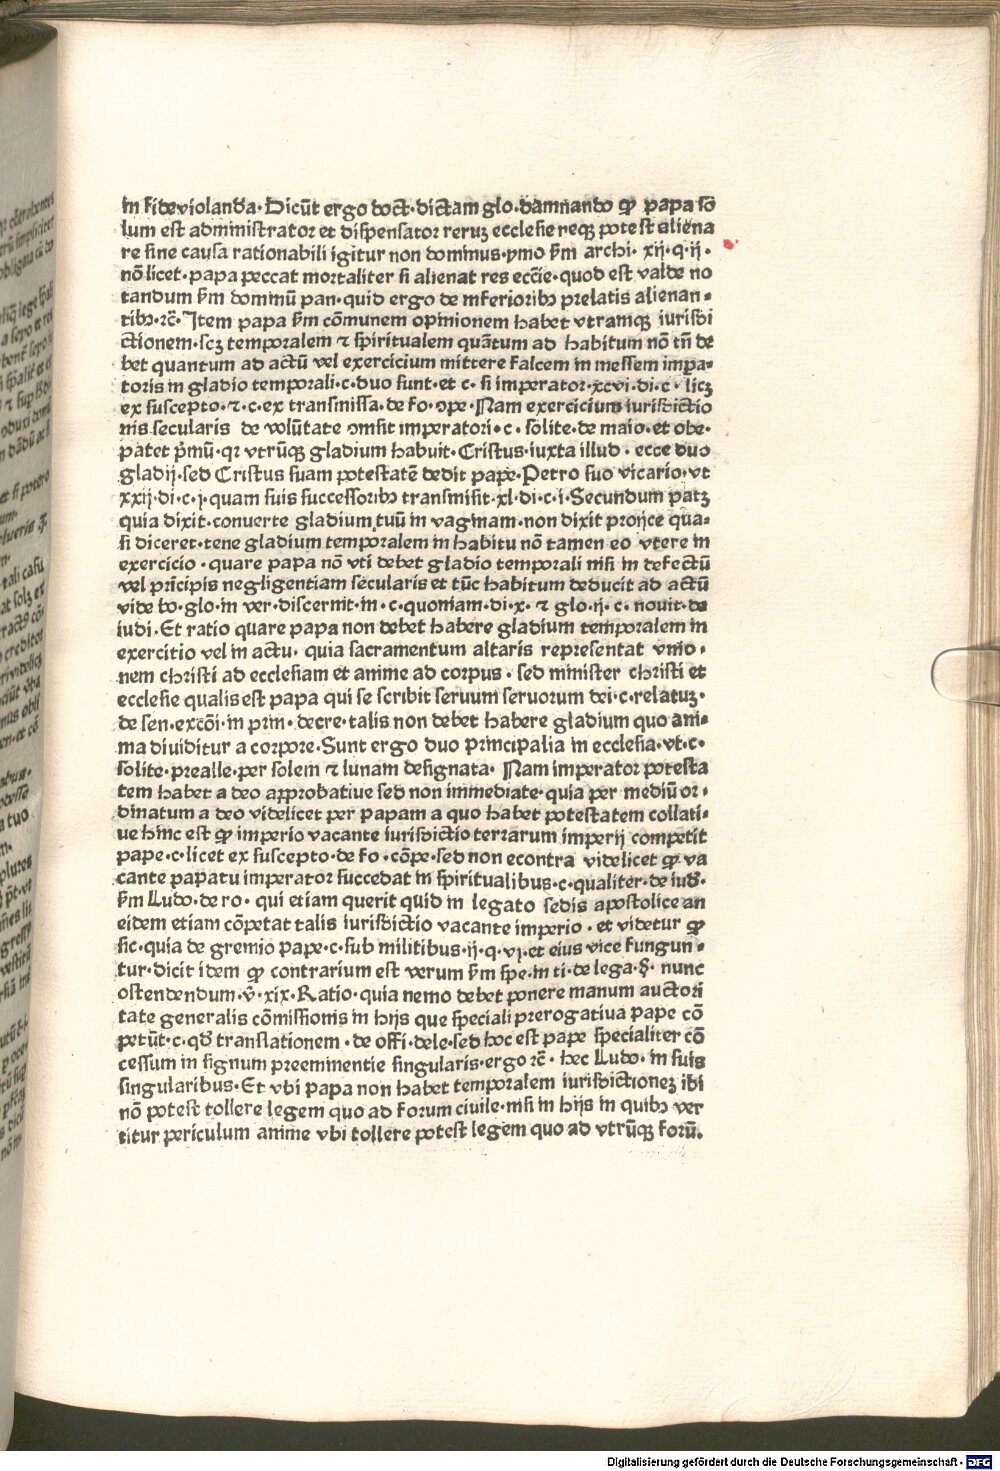 in fide violanda·Dicūt ergo doct·dictam glo·damnando ꝙ papa sō
lum est administrator et dispensator reruꝫ ecclesie neqꝫ potest aliena
re sine causa rationabili igitur non dominus·ymo ẜm archi· xij·q·ij·
nō licet·papa peccat mortaliter si alienat res ecc̄ie·quod est valde no
tandum ẜm dominū pan·quid ergo de inferioribꝰ prelatis alienan-
tibꝰ·⁊c̄·Item papa ẜm cōmunem opinionem habet vtramqꝫ iurisdi
ctionem·scꝫ temporalem ⁊ spiritualem quātum ad habitum nō tn̄ de
bet quantum ad actū vel exercicium mittere falcem in messem impa-
toris in gladio temporali·c·duo sunt·et c· si imperator·xcvi·di·c· licꝫ
ex suscepto·⁊·c·ex transmissa·de fo·ꝯpe·Nam exercicium iurisdictio
nis secularis de volūtate ꝯmsit imperatori·c· solite·de maio·et obe·
patet p̄mū·qꝛ vtrūqꝫ gladium habuit·Cristus·iuxta illud· ecce duo
gladij·sed Cristus suam potestatē dedit pape·Petro suo vicario·vt
xxij·di·c·j·quam suis successoribꝰ transmisit·xl·di·c·i·Secundum patꝫ
quia dixit·conuerte gladium tuū in vaginam·non dixit proijce qua-
si diceret·tene gladium temporalem in habitu nō tamen eo vtere in
exercicio·quare papa nō vti debet gladio temporali nisi in defectū
vel principis negligentiam secularis et tūc habitum deducit ad actū
vide bo·glo·in ver·discernit·in·c·quoniam·di·x· ⁊ glo·ij·c·nouit·de
iudi·Et ratio quare papa non debet habere gladium temporalem in
exercitio vel in actu· quia sacramentum altaris representat vnio-
nem christi ad ecclesiam et anime ad corpus· sed minister christi et
ecclesie qualis est papa qui se scribit seruum seruorum dei·c·relatuꝫ·
de sen·excōi·in prin·decre·talis non debet habere gladium quo ani-
ma diuiditur a corpore·Sunt ergo duo principalia in ecclesia·vt·c·
solite·prealle·per solem ⁊ lunam designata· Nam imperator potesta
tem habet a deo approbatiue sed non immediate·quia per mediū or-
dinatum a deo videlicet per papam a quo habet potestatem collati-
ue hinc est ꝙ imperio vacante iurisdictio terrarum imperij competit
pape·c·licet ex suscepto·de fo·cōpe·sed non econtra videlicet ꝙ va
cante papatu imperator succedat in spiritualibus·c·qualiter·de iud·
ẜm Ludo·de ro· qui etiam querit quid in legato sedis apostolice an
eidem etiam cōpetat talis iurisdictio vacante imperio· et videtur ꝙ
sic·quia de gremio pape·c·sub militibus·ij·q·vj·et eius vice fungun-
tur·dicit idem ꝙ contrarium est verum ẜm spe·in ti·de lega·§· nunc
ostendendum·v̄·xix·Ratio·quia nemo debet ponere manum auctori
tate generalis cōmissionis in hijs que speciali prerogatiua pape cō
petūt·c·qd̄ translationem·de offi·dele·sed hoc est pape specialiter cō
cessum in signum preeminentie singularis·ergo ⁊c̄· hec Ludo·in suis
singularibus·Et vbi papa non habet temporalem iurisdictioneꝫ ibi
nō potest tollere legem quo ad forum ciuile·nisi in hijs in quibꝰ ver
titur periculum anime vbi tollere potest legem quo ad vtrūqꝫ forū.
Digitalisierung gefördert durch die Deutsche Forschungsgemeinschaft - DFG